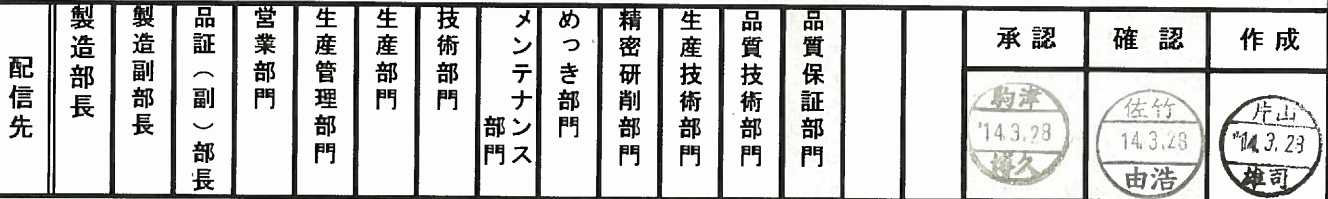 配信先
製造部長
製造副部長
品証(副)部長
営業部門
生産管理部門
生産部門
技術部門
メンテナンス
部門
めっき部門
精密研削部門
生産技術部門
品質技術部門
品質保証部門
承認
確認
作成
駒津
'14.3.28
博久
佐竹
14.3.28
由浩
片山
'14.3.28
雄司